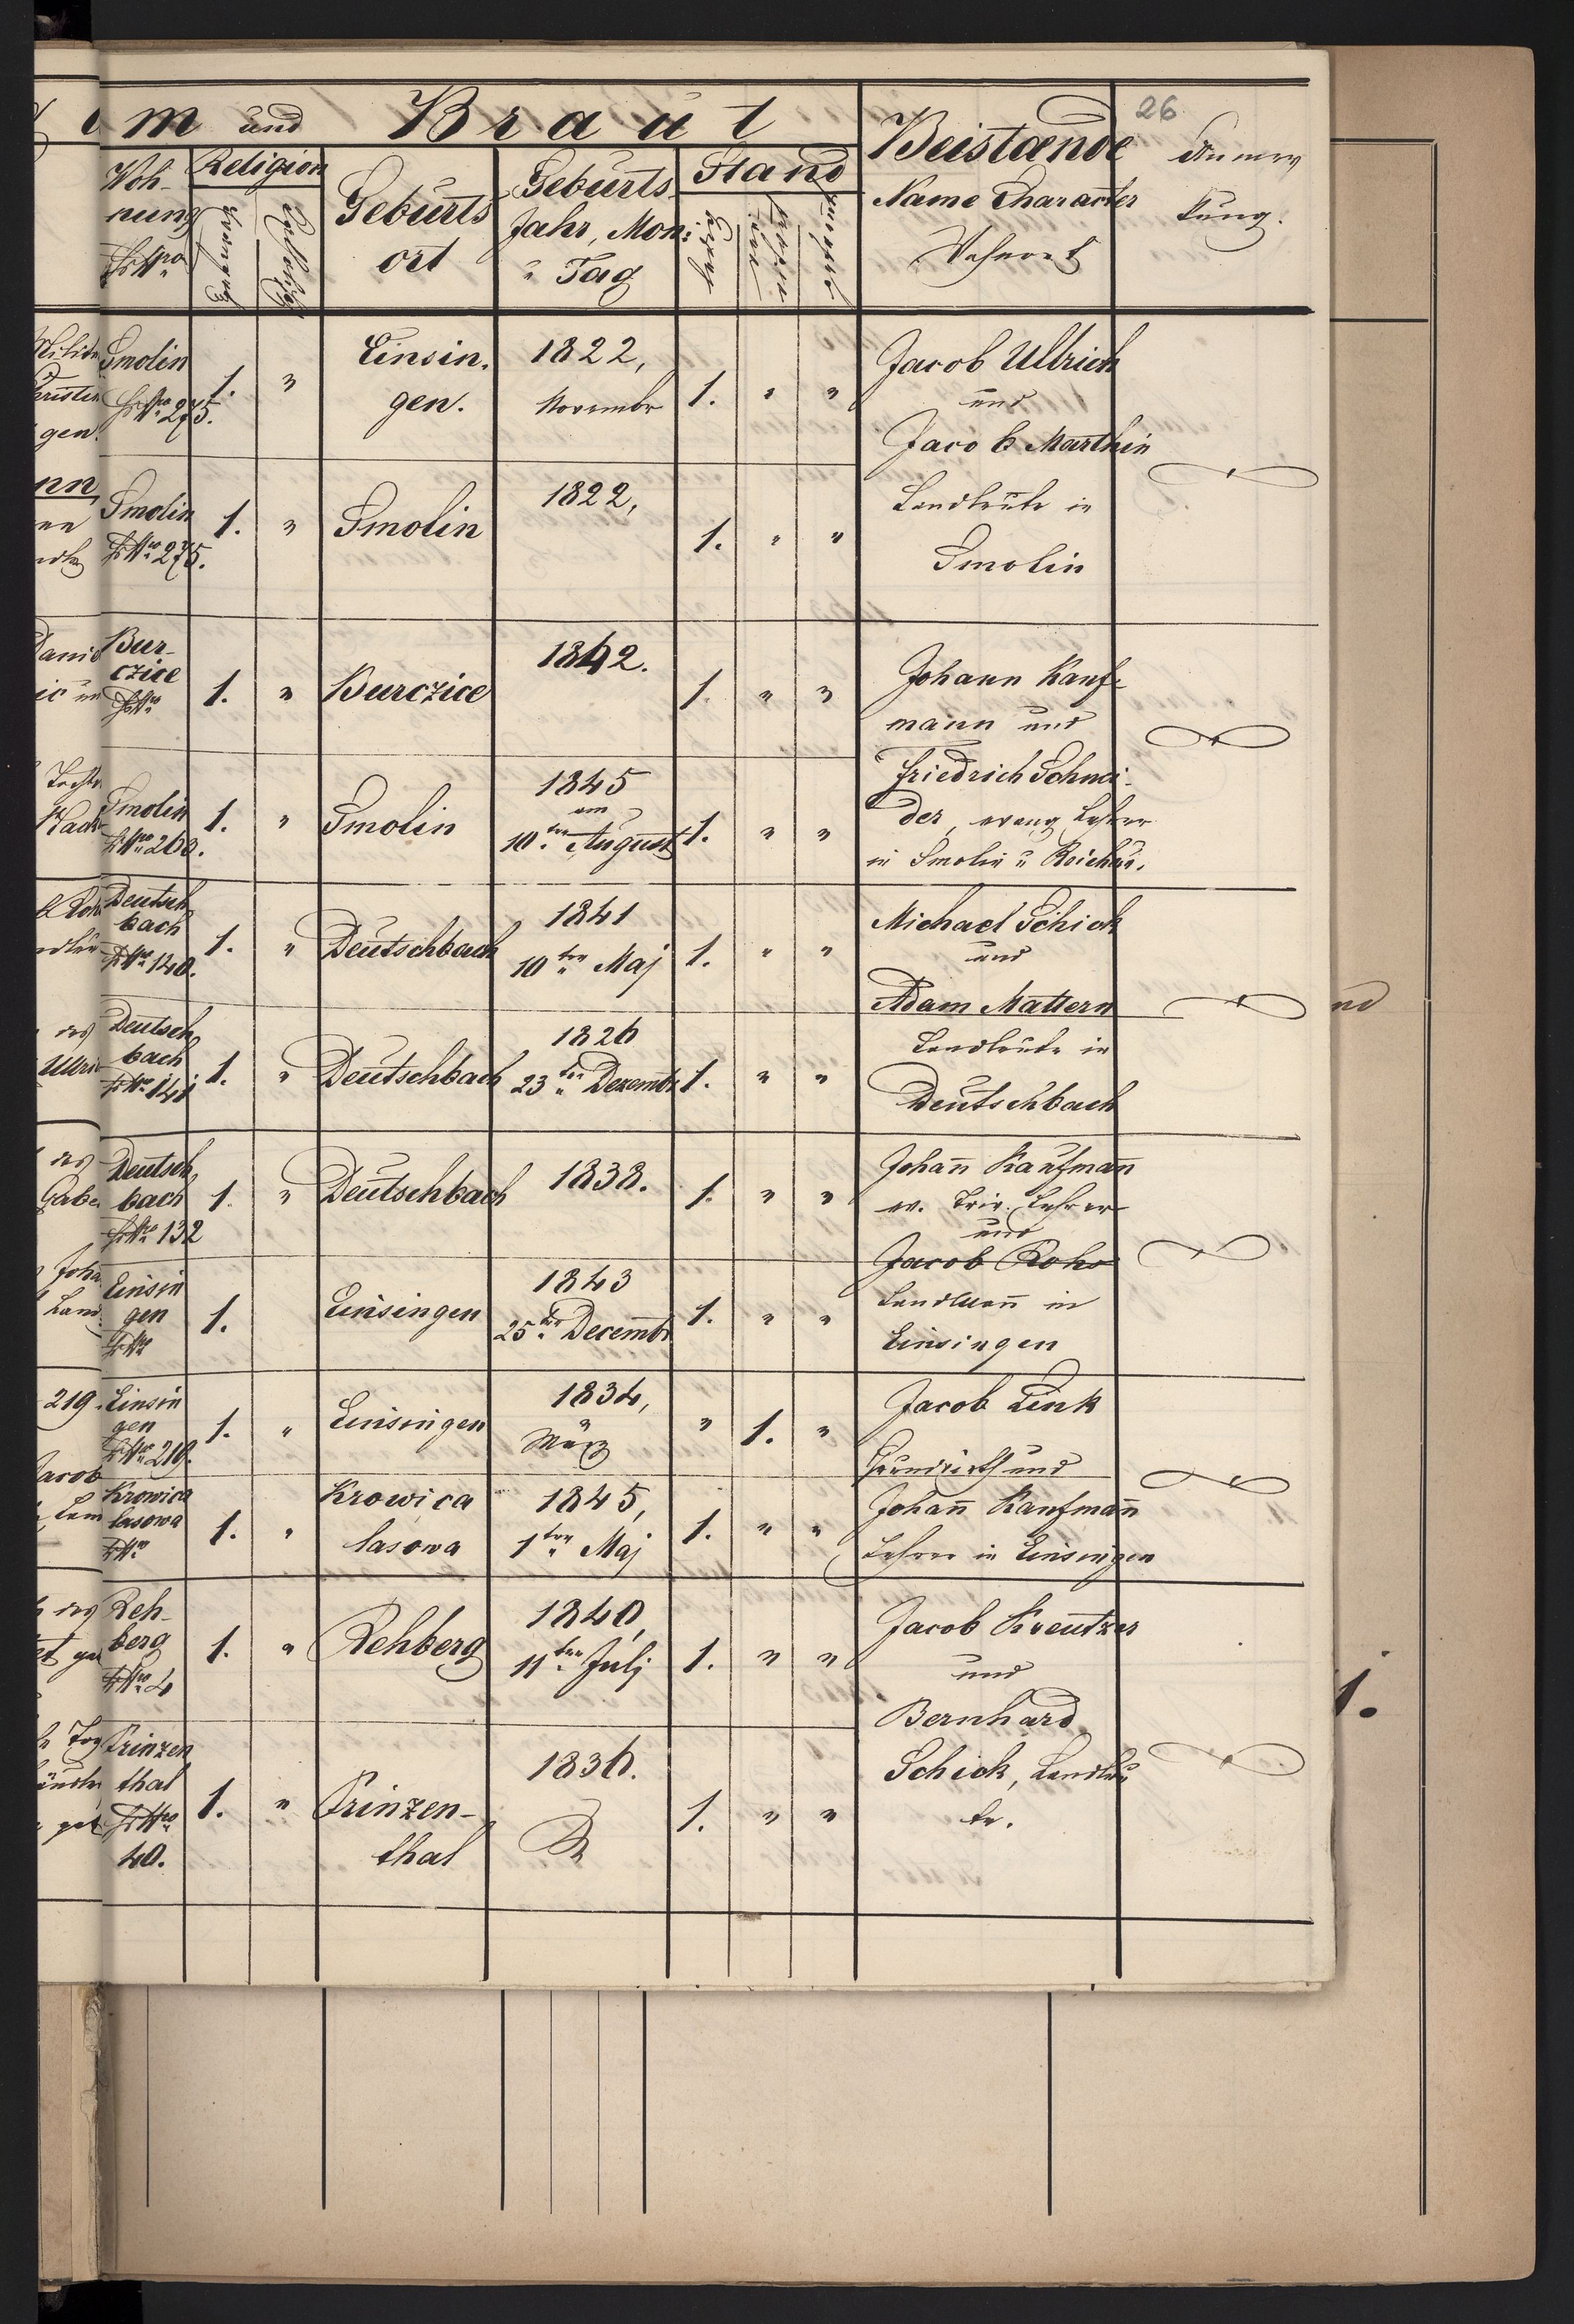 26
m und Braut
Beistænde
Anmer
kung.
Name Character
Wohnort
Woh-
nung
HsNro
Religion
Geburts
ort
Geburts
Jahr, Mon:
u Tag
Stand
Smolin
HsNro 275.
1.
"
Einsin.
gen.
1822,
November
1.
"
"
Jacob Ullrich
und
Jacob Marthin
Landleute in
Smolin
gen.
nn
Smolin
HsNro 275.
1.
"
Smolin
1822,
1.
"
"
Bur-
czice
HsNro
1.
"
Burczice
1842.
1.
"
"
Johann Kauf-
mann und
Friedrich Schnei-
der, evang Lehrer
in Smolin u Reichau.
Smolin
HsNro 260.
1.
"
Smolin
1845
am
10ten August
1.
"
"
Deutsch
bach
HsNro 140.
1.
"
Deutschbach
1841
10ten Maj
1.
"
"
Michael Schick
und
Adam Mattern
Landleute in
Deutschbach
des
Deutsch
bach
HsNro 141
1.
"
Deutschbach
1826
23ten Dezembr
1.
"
"
des
Deutsch
bach
HsNro 132
1.
"
Deutschbach
1838.
1.
"
"
Johann Kaufmann
ev. Triv. Lehrer
und
Jacob Rohs
Landmann in
Einsingen
Einsin
gen
HsNro
1.
Einsingen
1843
25ten Decembr
1.
"
"
219.
Einsin
gen
HsNro 219.
1.
"
Einsingen
1834,
März
"
1.
"
Jacob Link
Grundwirth und
Johann Kaufmann
Lehrer in Einsingen
Jacob
Krowica
lasowa
HsNro
1.
"
Krowica
lasowa
1845,
1ten Maj
1.
"
"
des
Reh-
berg
HsNro 4
1.
"
Rehberg
1840,
11ten Julj
1.
"
"
Jacob Kreutzer
und
Bernhard
Schick, Landleu
te.
Prinzen
thal
HsNro
40.
1.
"
Prinzen-
thal
1836.
1.
"
"
nd
1.